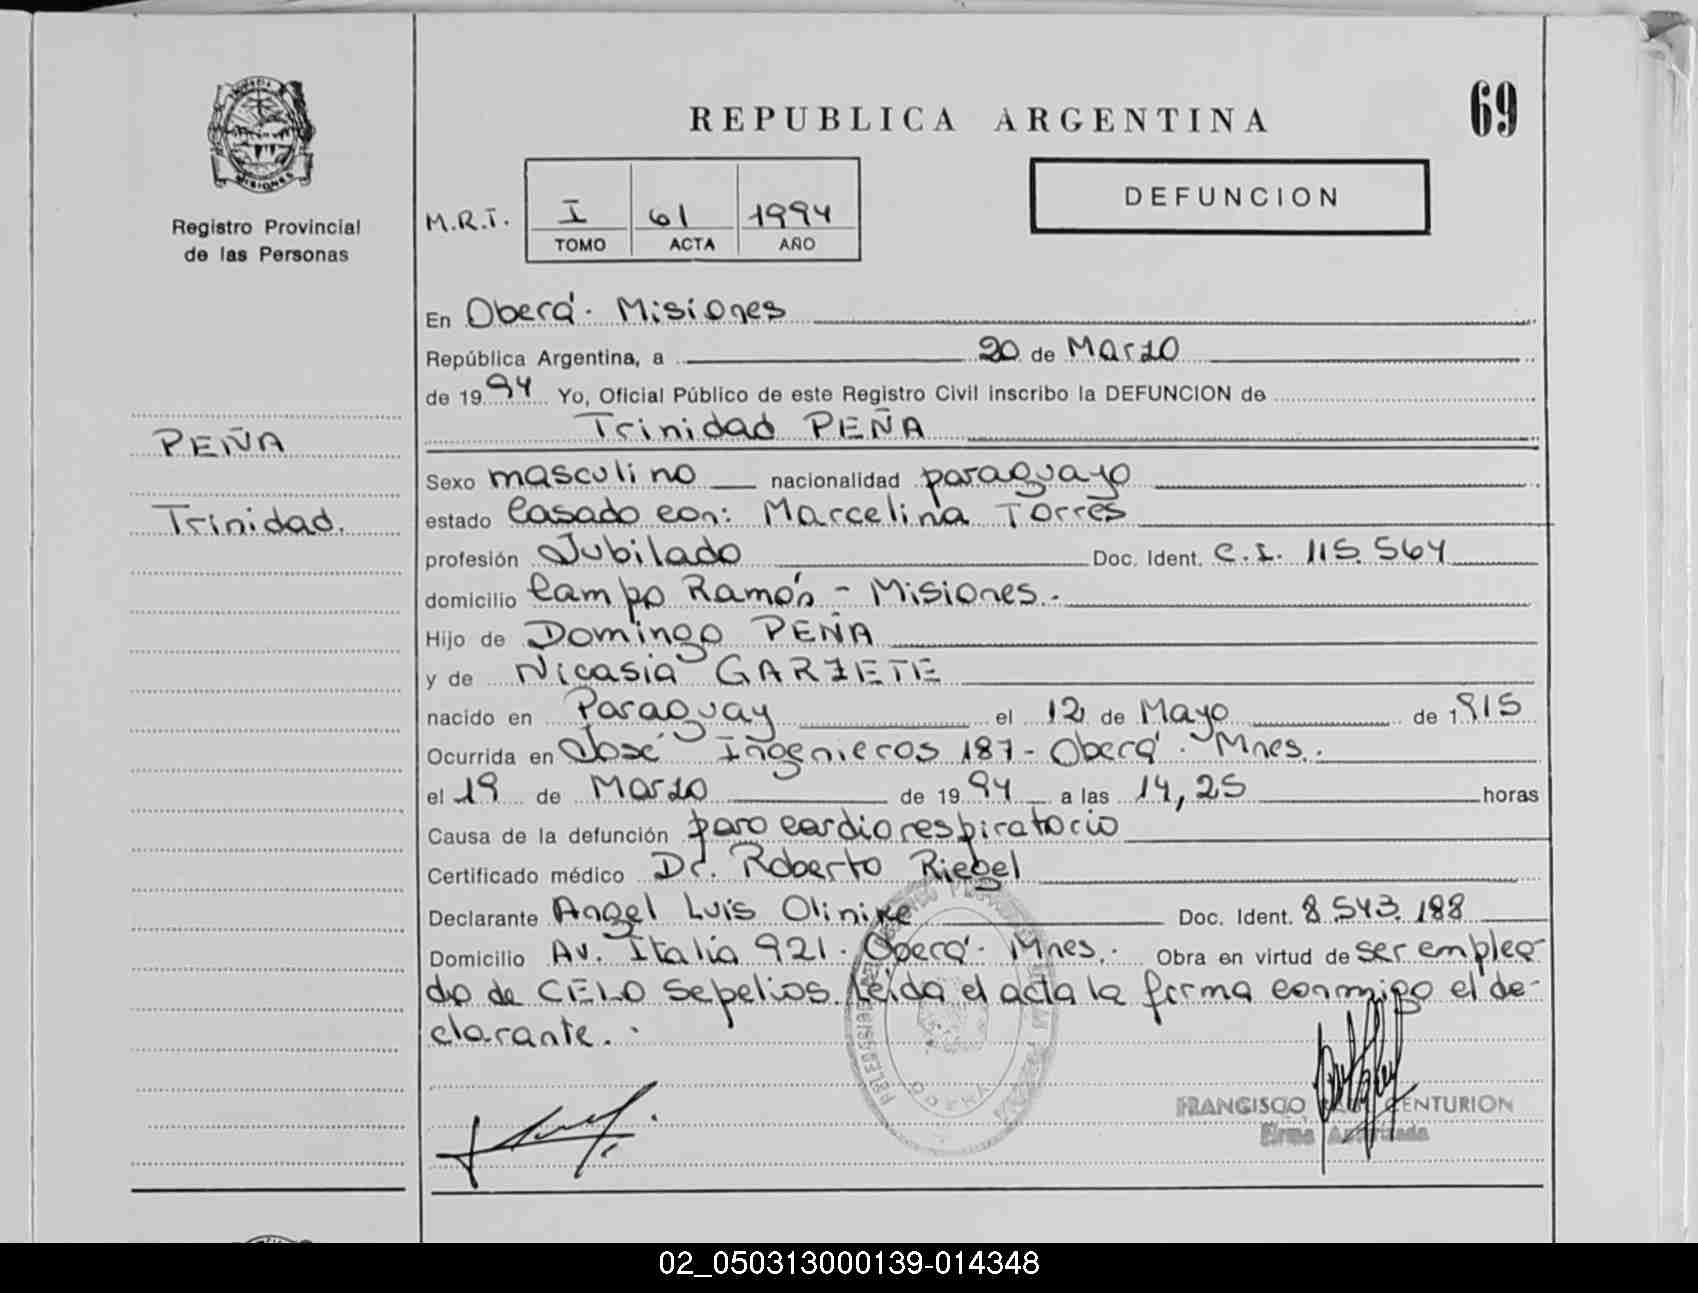 69
REPUBLICA ARGENTINA
DEFUNCION
MISIONES
Registro Provincial
de las Personas
M.R.T. I 61 1994
TOMO ACTA AÑO
En Oberá. Misiones
República Argentina, a 20 de Marzo
de 1994 Yo, Oficial Público de este Registro Civil inscribo la DEFUNCION de
Trinidad PEÑA
PEÑA
Trinidad.
Sexo masculino nacionalidad paraguayo
estado Casado con: Marcelina Torres
profesión Jubilado Doc. Ident. C.I. 115.564
domicilio Campo Ramón - Misiones.
Hijo de Domingo PEÑA
y de Nicasia GARZETE
nacido en Paraguay el 12 de Mayo de 1915
Ocurrida en José Ingenieros 187 - Oberá. Mnes.
el 19 de Marzo de 1994 a las 14,25 horas
Causa de la defunción paro cardiorespiratorio
Certificado médico Dr. Roberto Riegel
Declarante Angel Luis Olinike Doc. Ident. 8.543.188
Domicilio Av. Italia 921. Oberá. Mnes. Obra en virtud de ser emplea-
do de CELO Sepelios. Leída el acta la firma conmigo el de-
clarante.
FRANCISCO CENTURION
Firma Autorizada
02_050313000139-014348